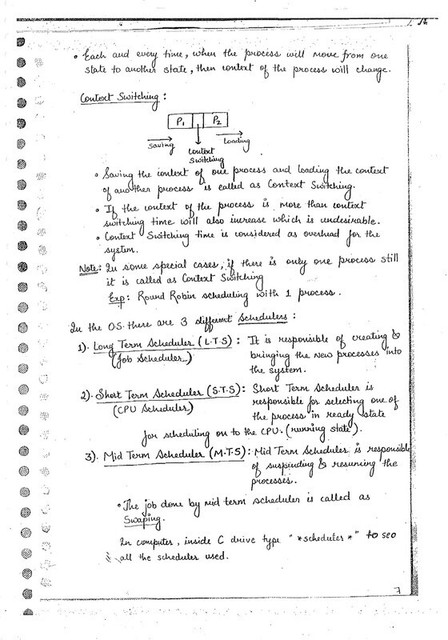 • Each and every time, when the process will move from one
state to another state, then context of the process will change.
Context Switching :
P1 P2
saving loading
context
switching
• Saving the context of one process and loading the context
of another process is called as Context Switching.
• If the context of the process is more than context
switching time will also increase which is undesirable.
• Context Switching time is considered as overhead for the
system.
Note: In some special cases, if there is only one process still
it is called as Context Switching
Exp: Round Robin scheduling with 1 process.
In the OS there are 3 different Schedulers :
1). Long Term Scheduler (L.T.S) : It is responsible of creating &
(Job Scheduler) bringing the new processes into
the system.
2). Short Term Scheduler (S.T.S) : Short Term Scheduler is
(CPU Scheduler) responsible for selecting one of
the process in ready state
for scheduling on to the CPU. (running state).
3). Mid Term Scheduler (M.T.S) : Mid Term Scheduler is responsible
of suspinding & resuming the
processes.
• The job done by mid term scheduler is called as
Swaping.
In computer, inside C drive type "*scheduler*" to see
all the scheduler used.
7